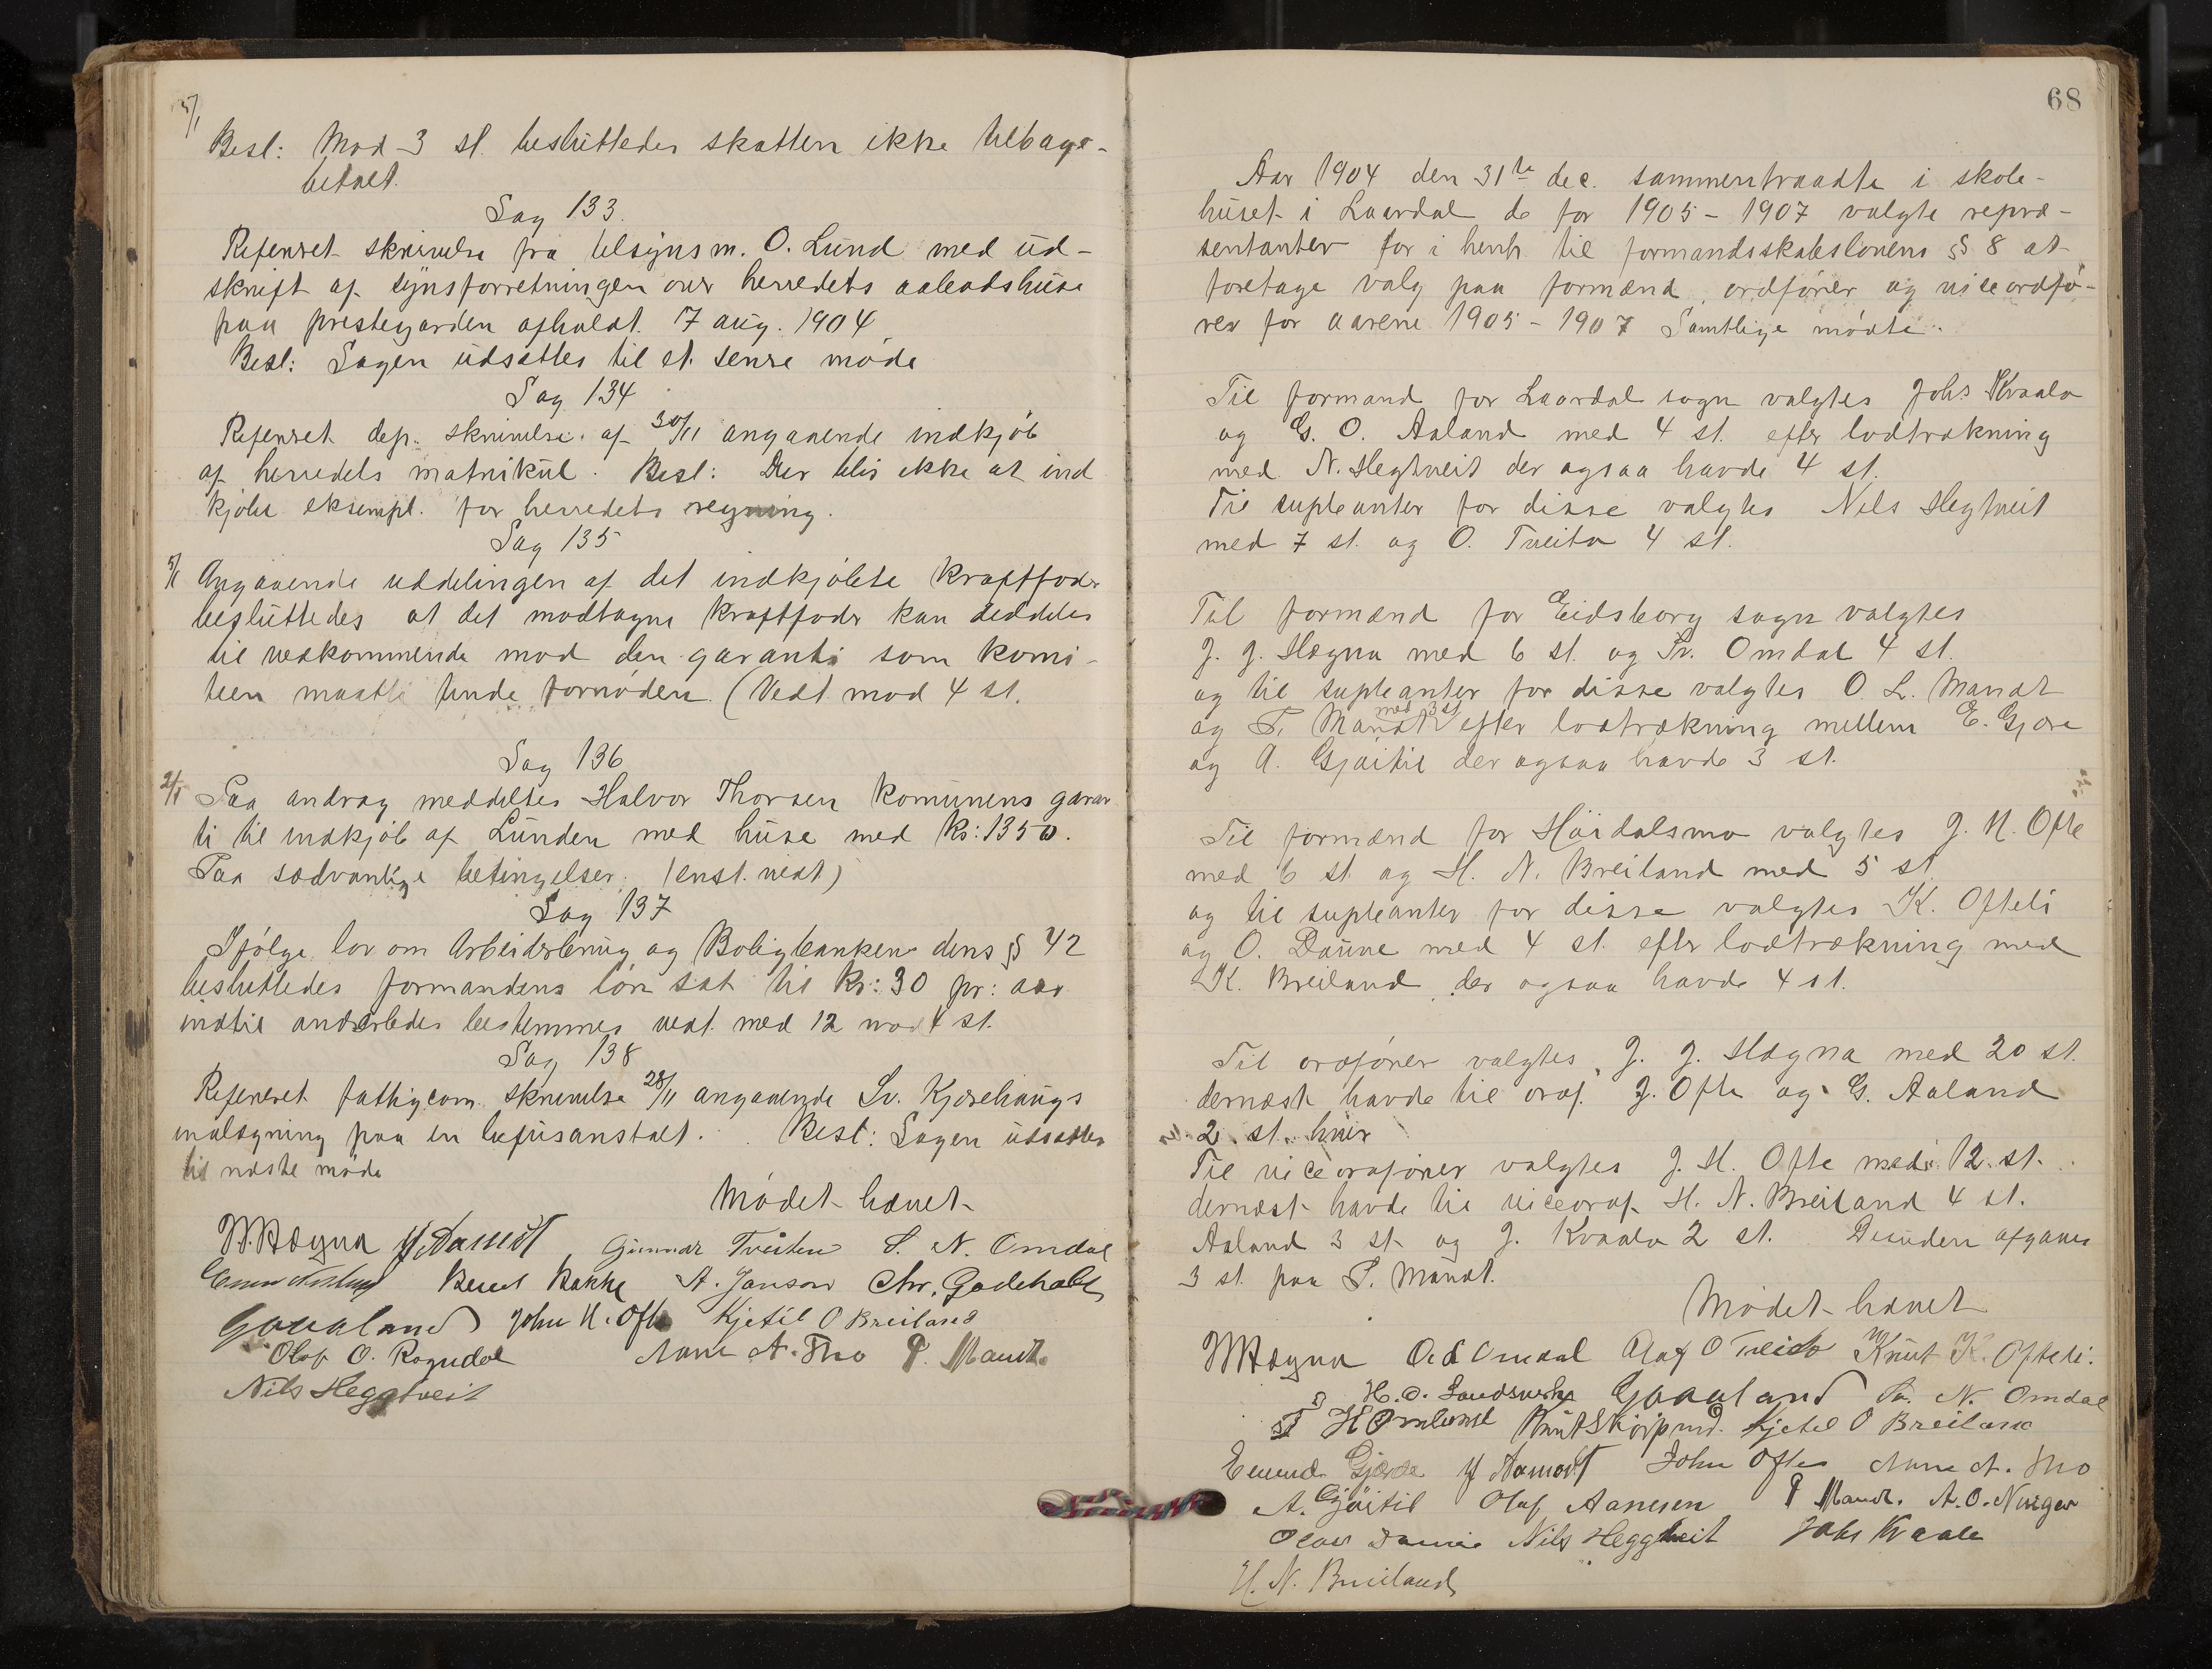 5/1
Besl: Mod 3 st. besluttedes skatten ikke tilbage-
betalt.
Sag 133.
Refereret skrivelse fra tilsynsm. O. Lund med ud-
skrift af synsforretningen over herredets aabodshuse
paa prestegarden afholdt 7 aug. 1904
Besl: Sagen udsættes til et senere møde
Sag 134
Refereret dep. skrivelse af 30/11 angaaende indkjøb
af herredets matrikul. Besl: Der blir ikke at ind
kjøbe eksempl. for herredets regning.
Sag 135
5/1 Angaaende uddelingen af det indkjøbte kraftfoder
besluttedes at det modtagne kraftfoder kan uddeles
til vedkommende mod den garanti som komi-
teen maatte finde fornøden (Vedt. mod 4 st.
Sag 136
2/1 Paa andrag meddeltes Halvor Thorsen komunens garan
ti til indkjøb af Lunden med huse med Kr: 1350.
Paa sædvanlige betingelser. (enst. vedt)
Sag 137
Ifølge lov om Arbeiderbrug og Boligbanken dens § 42
besluttedes formandens løn sat til Kr: 30 pr: aar
indtil anderledes bestemmes vedt. med 12 mod 4 st.
Sag 138
Refereret fattigcom. skrivelse 28/11 angaaende Sv. Kjerehaugs
indlægning paa en lungeanstalt. Besl: Sagen udsættes
til næste møde
Mødet hævet
Gunnar Tveiten S. N. Omdal
Berut Bakke A. Janson Chr. Godehalt
Gaualand John H. Ofte Kjetil O Breiland
Olof O. Rogndal Aane A. Tho P. Mandt.
Nils Heggtveit
68
Aar 1904 den 31te dec. sammentraadte i skole-
huset i Laardal de for 1905-1907 valgte repræ-
sentanter for i henh til formandsskabslovens § 8 at
foretage valg paa formænd, ordfører og viseordfø-
rer for aarene 1905-1907 Samtlige mødte.
Til formænd for Laardal sogn valgtes Johs Kvaale
og G. O. Aaland med 4 st. efter lodtrækning
med N. Hegtveit der ogsaa havde 4 st.
Til supleanter for disse valgtes Nils Hegtveit
med 7 st. og O. Tveito 4 st.
Til formænd for Eidsborg sogn valgtes
J. J. Hægna med 6 st. og Sv. Omdal 4 st.
og til supleanter for disse valgtes O. L. Mandt
og T. Mandt med 3 st efter lodtrækning mellem E. Gjøre
og A. Gjøitil der ogsaa havde 3 st.
Til formænd for Høidalsmo valgtes J. H. Ofte
med 6 st. og H. N. Breiland med 5 st.
og til supleanter for disse valgtes K. Ofteli
og O. Daune med 4 st. efter lodtrækning med
K. Breiland, der ogsaa havde 4 st.
Til ordfører valgtes J. J. Hægna med 20 st.
dernæst havde til ordf. J. Ofte og G. Aaland
2 st. hver
Til viceordfører valgtes J. H. Ofte med 12 st.
dernæst havde til viceordf. H. N. Breiland 4 st.
Aaland 3 st og J. Kvaale 2 st. Desuden afgaves
3 st. paa P. Mandt.
Mødet hævet
O. L Omdal Olaf O Tveito Knut K. Ofteli.
H. O. Landsverk Gaualand Sv. N. Omdal
Kjetel O Breiland
Eivind Gjøre John Ofte Aane A. Tho
A. Gjøitil Olaf Aanesen P Mandt.
Olav Daune Nils Heggtveit Johs Kvaale
H. N. Breiland